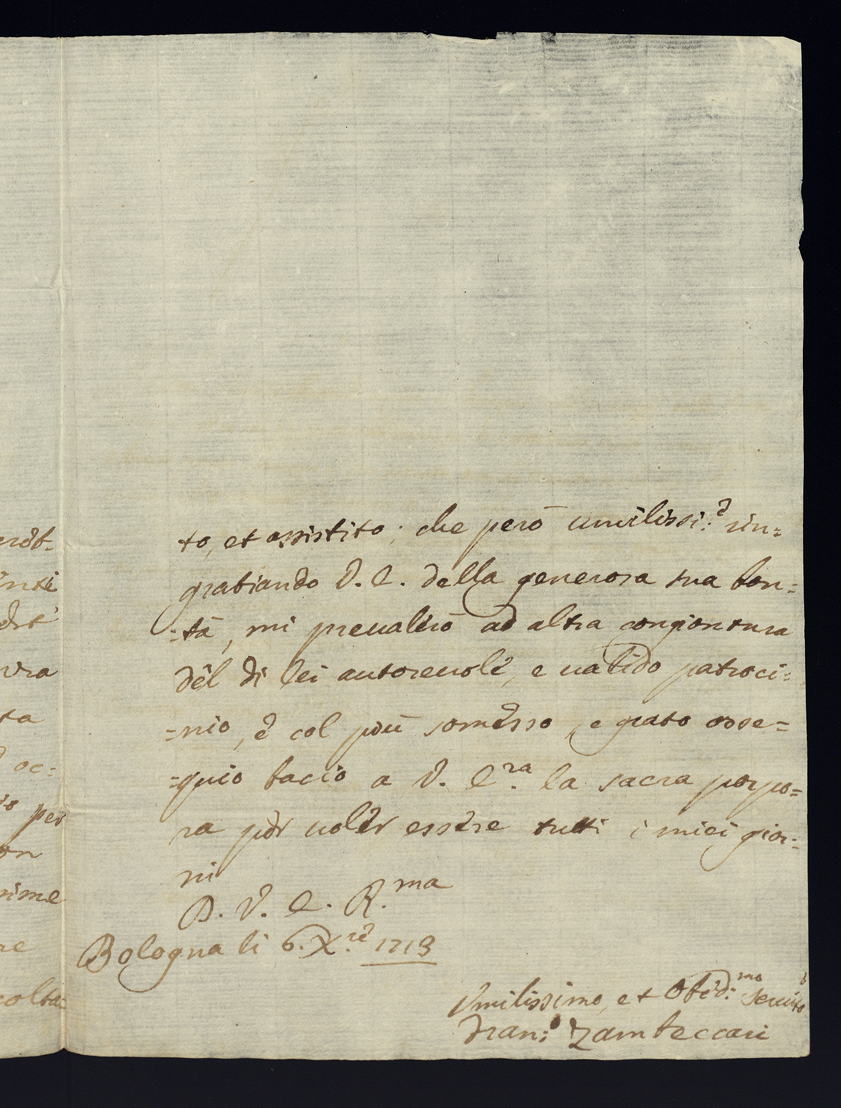 to, et assistito; che però umilissi:e rin=
gratiando V. E. della generosa sua bon=
=tà, mi prevalerò ad altra congiontura
del di lei autorevole, e valido patroci=
=nio, e col più somesso, e grato osse=
=quio bacio a V. E.ra la sacra porpo=
ra per voler essere tutti i miei gior=
ni
D. V. E. R.ma
Bologna li 6. X.re 1713
Umilissimo, et Obed:mo Servito
Fran:o Zambeccari